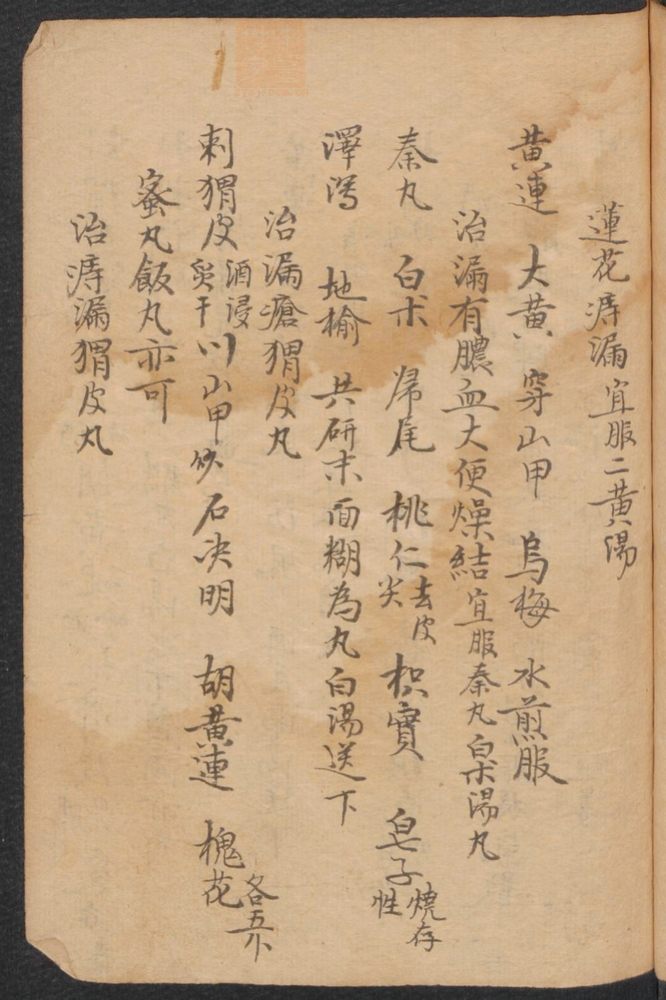 蓮花痔漏宜服二黄湯
黄連 大黄 穿山甲 烏梅 水煎服
治漏有膿血大便燥結宜服秦丸白朮湯丸
秦丸 白朮 帰尾 桃仁去皮尖 枳實 皂子燒存性
澤瀉 地榆 共研末面糊為丸白湯送下
治漏瘡猬皮丸
刺猬皮酒浸炙干 川山甲炒 石决明 胡黄連 槐花各五个
蜜丸飯丸亦可
治痔漏猬皮丸